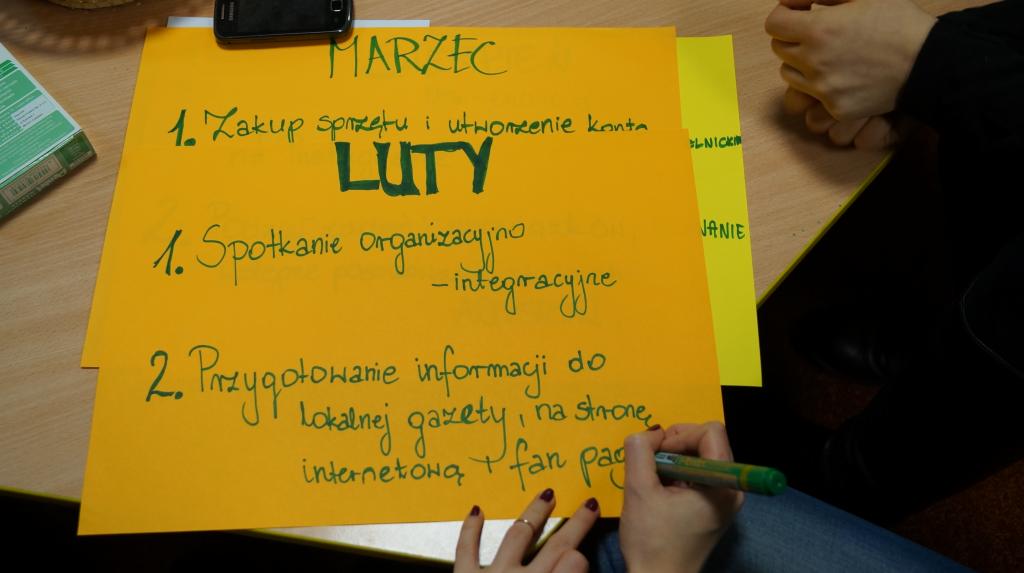 MARZEC
1. Zakup sprzętu i utworzenie konta
LUTY
1. Spotkanie organizacyjno
- integracyjne
2. Przygotowanie informacji do
lokalnej gazety, na stronę
internetową + fan pag
ELNICKIM
WANIE